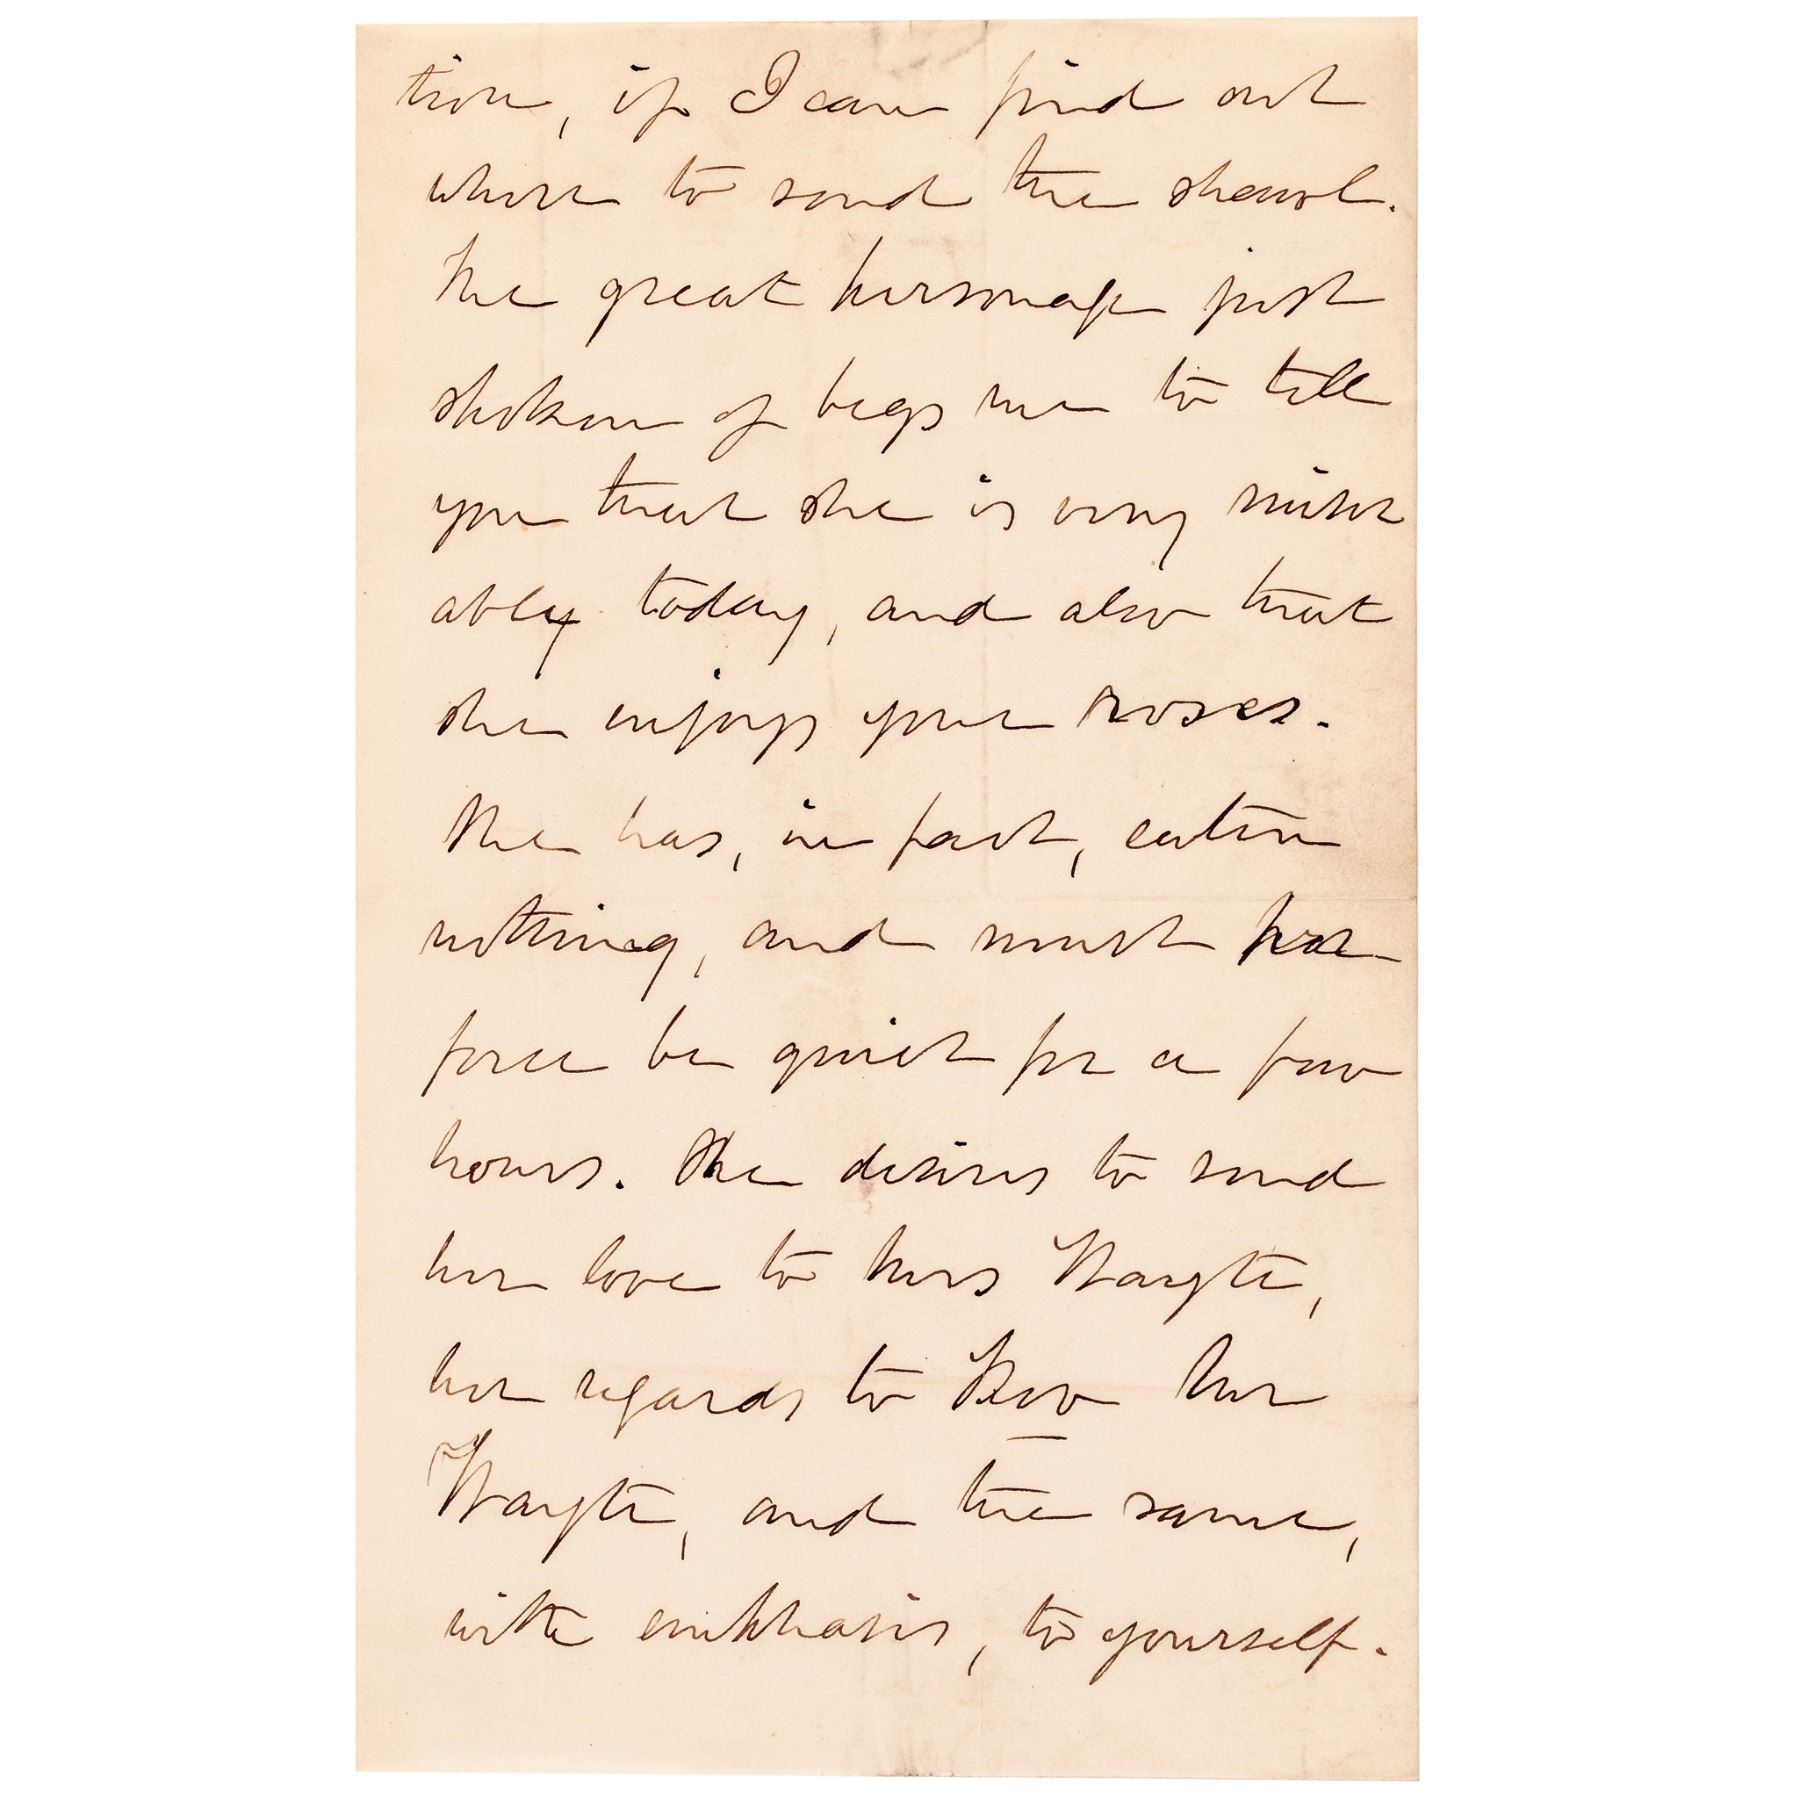 tion, if I can find out
where to send the shawl.
The great personage just
spoken of begs me to tell
you that she is very miser
ably today, and also that
she enjoys your roses.
She has, in fact, eaten
nothing, and must per
force be quiet for a few
hours. She desires to send
her love to Mrs Wayte,
her regards to Rev Mr
Wayte, and the same,
with emphasis, to yourself.